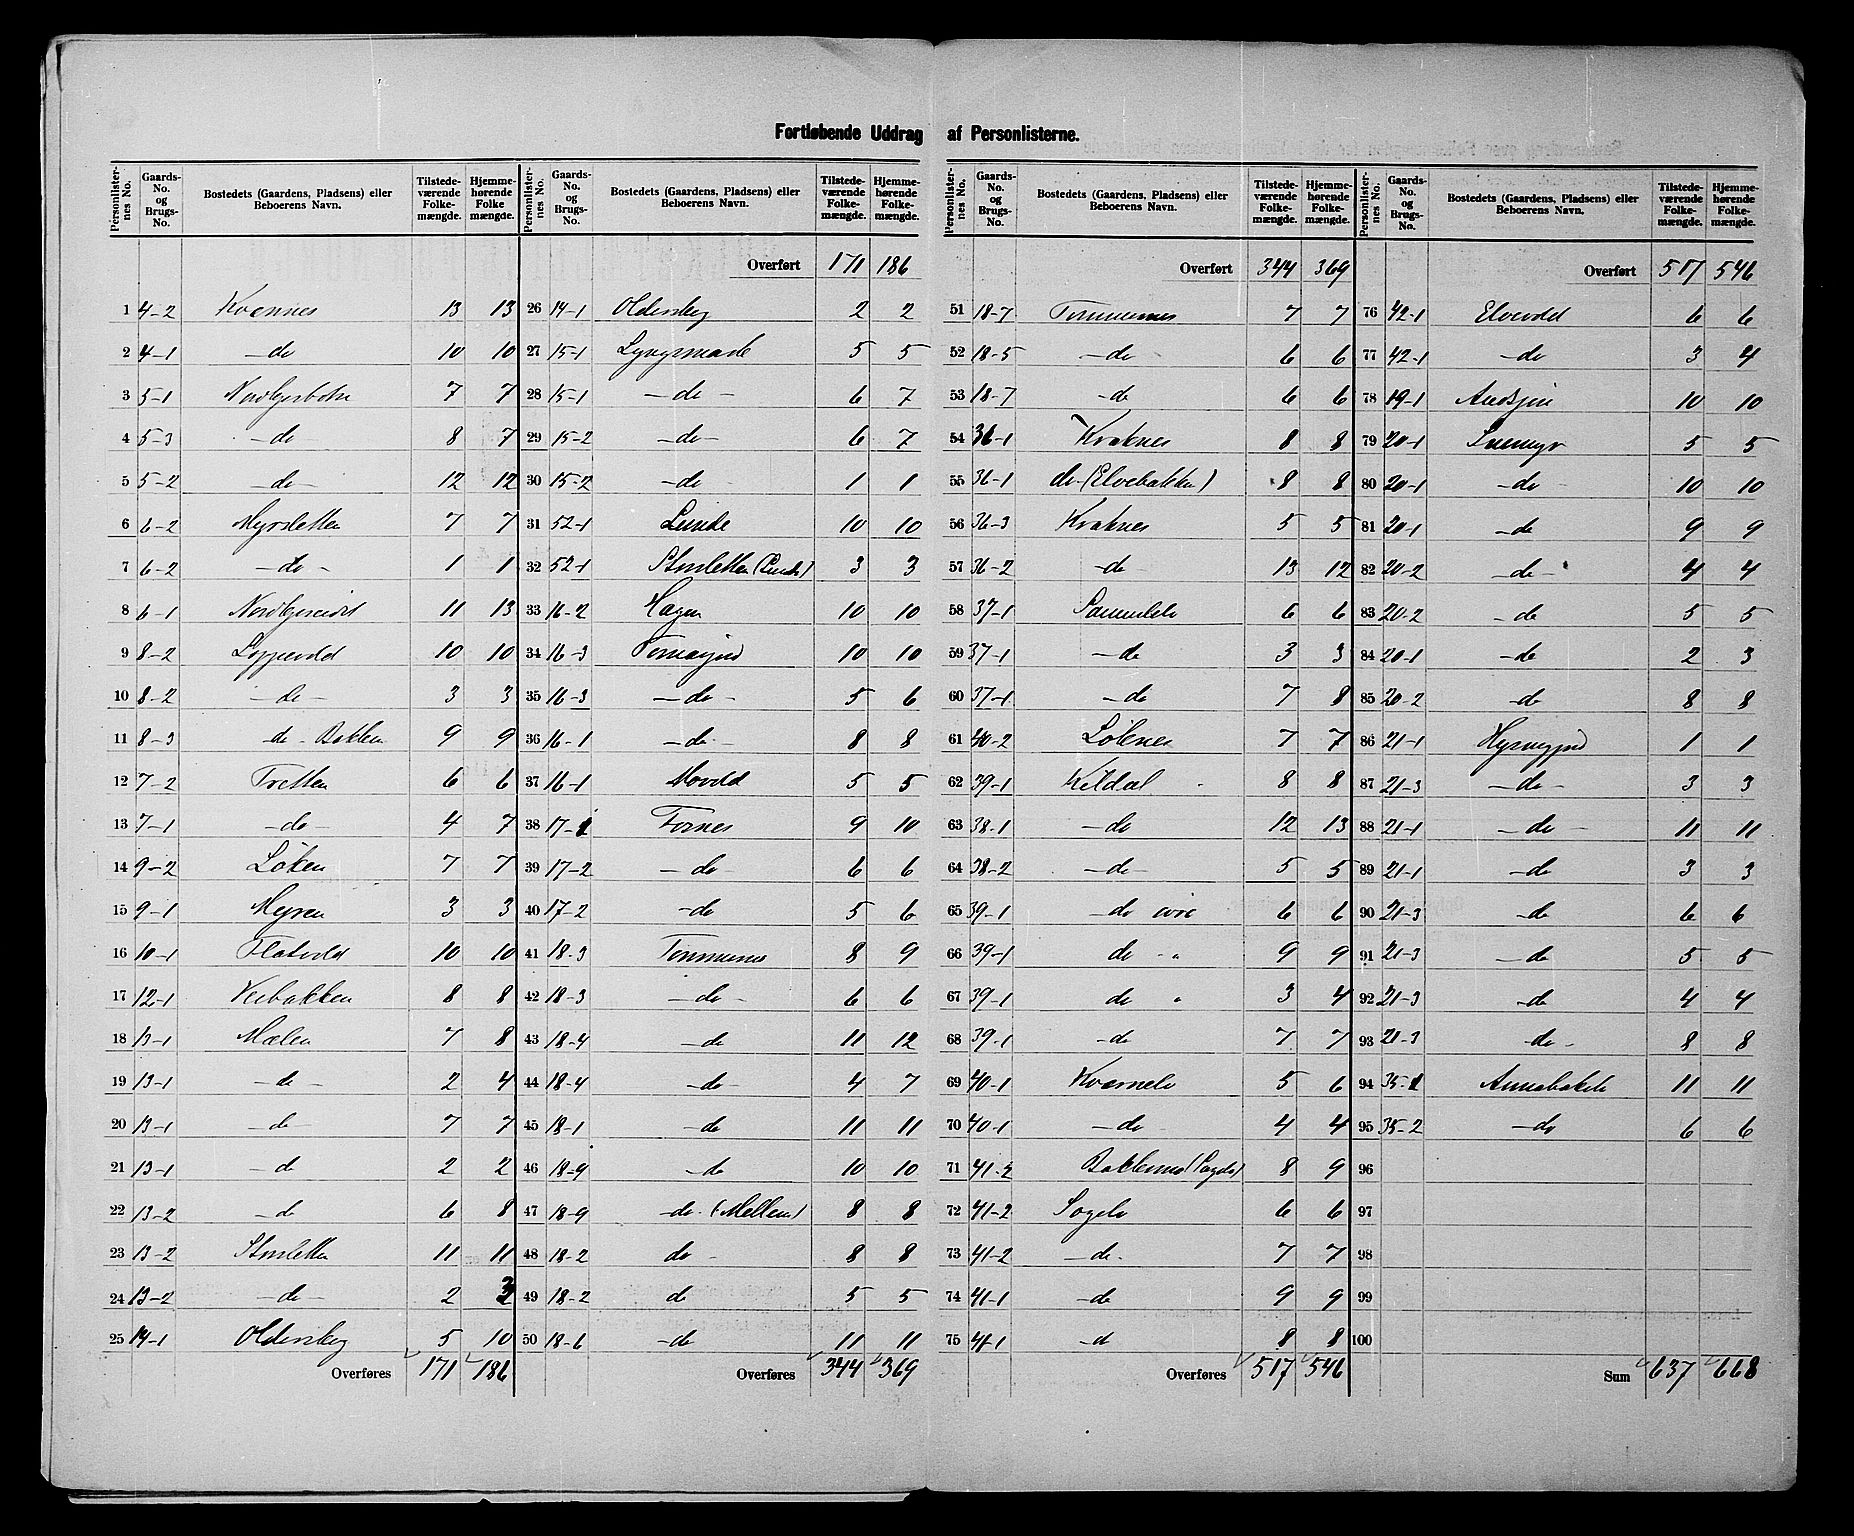 Fortløbende Uddrag af Personlisterne.
Personlister-nes No. Gaards-No. og Brugs-No. Bostedets (Gaardens, Pladsens) eller Beboerens Navn. Tilstede-værende Folke-mængde. Hjemme-hørende Folke mængde.
1 4-2 Kvænnes 13 13
2 4-1 -do- 10 10
3 5-1 Nordkjosbotn 7 7
4 5-3 -do- 8 7
5 5-2 -do- 12 12
6 6-2 Myrsletten 7 7
7 6-2 -do- 1 1
8 6-1 Nordkjoseidet 11 13
9 8-2 Loppevold 10 10
10 8-2 -do- 3 3
11 8-3 do - Bakken 9 9
12 7-2 Tretten 6 6
13 7-1 -do- 4 7
14 9-2 Løken 7 7
15 9-1 Myren 3 3
16 10-1 Flatvold 10 10
17 12-1 Veibakken 8 8
18 13-1 Mælen 7 8
19 13-1 -do- 2 4
20 13-1 -do- 7 7
21 13-1 -do 2 2
22 13-2 -do 6 8
23 13-2 Storsletten 11 11
24 13-2 -do- 2 3
25 14-1 Olderskog 5 10
Overføres 171 186
Personlister-nes No. Gaards-No. og Brugs-No. Bostedets (Gaardens, Pladsens) eller Beboerens Navn. Tilstede-værende Folke-mængde. Hjemme-hørende Folke-mængde.
Overført 171 186
26 14-1 Olderskog 2 2
27 15-1 Lyngsmark 5 5
28 15-1 -do- 6 7
29 15-2 -do- 6 7
30 15-2 -do- 1 1
31 52-1 Lunde 10 10
32 52-1 Storsletten (Lunde) 3 3
33 16-2 Hagen 10 10
34 16-3 10 10
35 16-3 -do- 5 6
36 16-1 -do- 8 8
37 16-1 Movold 5 5
38 17-1 Tornes 9 10
39 17-2 -do- 6 6
40 17-2 -do 5 6
41 18-3 Tommernes 8 9
42 18-3 -do- 6 6
43 18-4 -do 11 12
44 18-4 -do- 4 7
45 18-1 -do 11 11
46 18-9 -do 10 10
47 18-9 -do. (Mellem) 8 8
48 18-2 do - 8 8
49 18-2 do 5 5
50 18-6 -do 11 11
Overføres 344 369
Personlister-nes No. Gaards-No. og Brugs-No. Bostedets (Gaardens, Pladsens) eller Beboerens Navn. Tilstede-værende Folke-mængde. Hjemme-hørende Folke-mængde.
Overført 344 369
51 18-7 Tommernes 7 7
52 18-5 -do- 6 6
53 18-7 -do 6 6
54 36-1 Kraknes 8 8
55 36-1 do-(Elvebakken) 8 8
56 36-3 Kraknes 5 5
57 36-2 -do- 13 12
58 37-1 Sommelelv 6 6
59 37-1 -do 3 3
60 37-1 -do 7 8
61 40-2 Løknes 7 7
62 39-1 Kildal 8 8
63 38-1 -do 12 13
64 38-2 -do- 5 5
65 39-1 -do øvre 6 6
66 39-1 do - " 9 9
67 39-1 do " 3 4
68 39-1 -do 7 7
69 40-1 Kvænelv 5 6
70 40-1 -do- 4 4
71 41-2 (Sogelv) 8 9
72 41-2 Sogelv 6 6
73 41-2 -do- 7 7
74 41-1 -do 9 9
75 41-1 -do 8 8
Overføres 517 546
Personlister-nes No. Gaards-No. og Brugs-No. Bostedets (Gaardens, Pladsens) eller Beboerens Navn. Tilstede-værende Folke-mængde. Hjemme-hørende Folke-mængde.
Overført 517 546
76 42-1 Elvevold 6 6
77 42-1 -do 3 4
78 19-1 10 10
79 20-1 Snemyr 5 5
80 20-1 -do- 10 10
81 20-1 -do 9 9
82 20-2 -do- 4 4
83 20-2 -do 5 5
84 20-1 -do 2 3
85 20-2 -do 8 8
86 21-1 1 1
87 21-3 -do- 3 3
88 21-1 -do- 11 11
89 21-1 -do 3 3
90 21-3 -do 6 6
91 21-3 -do 5 5
92 21-3 -do 4 4
93 21-3 -do- 8 8
94 35-1 Annabakelv 11 11
95 35-2 -do 6 6
96
97
98
99
100
Sum 637 668